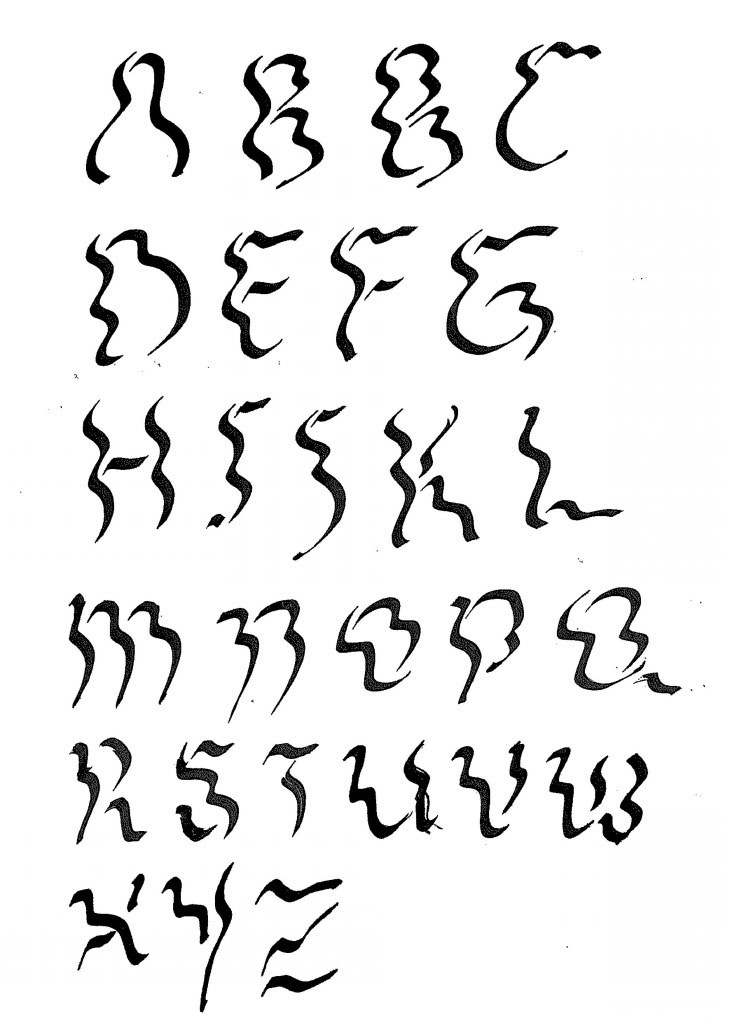 A B B C
D E F G
H I J K L
M N O P Q
R S T U V W
X Y Z